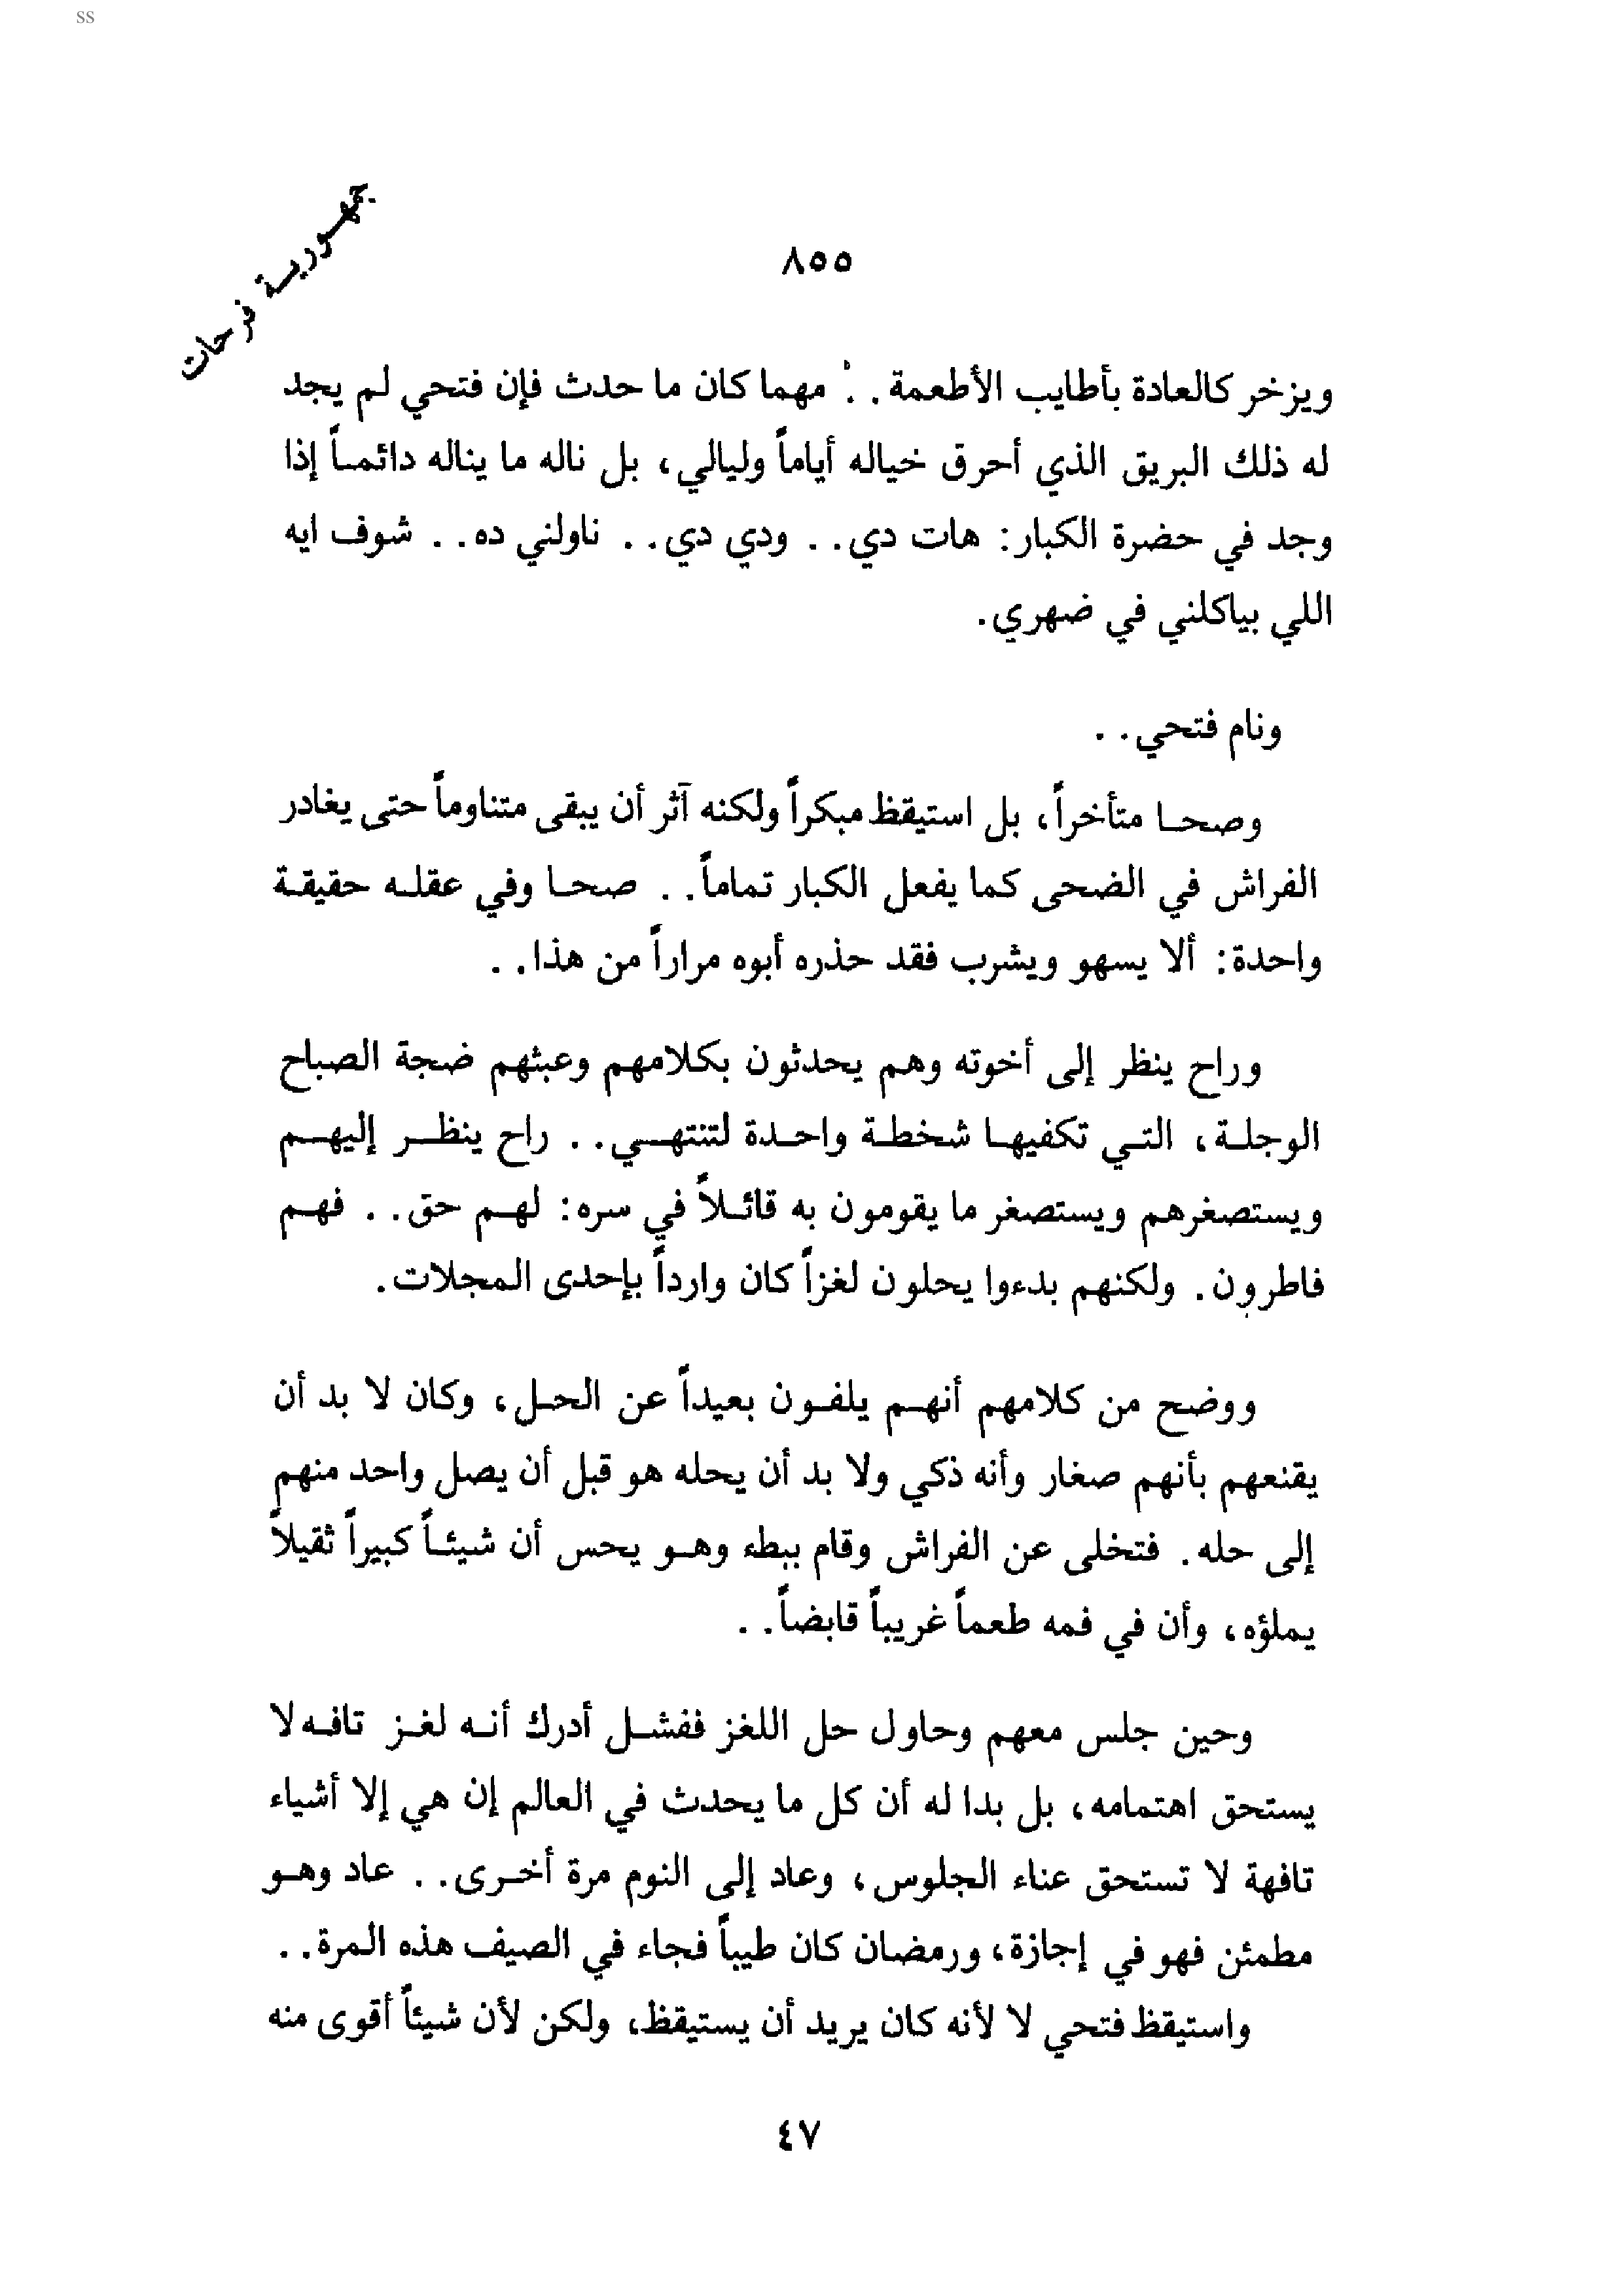 ss
جمهورية فرحات
٨٥٥
ويزخر كالعادة بأطايب الأطعمة . . مهما كان ما حدث فإن فتحي لم يجد
له ذلك البريق الذي أحرق خياله أياماً وليالي، بل ناله ما يناله دائماً إذا
وجد في حضرة الكبار: هات دي. . ودي دي. . ناولني ده. . شوف ايه
اللي بياكلني في ضهري.
ونام فتحي. .
وصحا متأخراً، بل استيقظ مبكراً ولكنه آثر أن يبقى متناوماً حتى يغادر
الفراش في الضحى كما يفعل الكبار تماماً. . صحا وفي عقله حقيقة
واحدة: ألا يسهو ويشرب فقد حذره أبوه مراراً من هذا. .
وراح ينظر إلى أخوته وهم يحدثون بكلامهم وعبثهم ضجة الصباح
الوجلة، التي تكفيها شخطة واحدة لتنتهي. . راح ينظر إليهم
ويستصغرهم ويستصغر ما يقومون به قائلاً في سره: لهم حق. . فهم
فاطرون. ولكنهم بدءوا يحلون لغزاً كان وارداً بإحدى المجلات.
ووضح من كلامهم أنهم يلفون بعيداً عن الحل، وكان لا بد أن
يقنعهم بأنهم صغار وأنه ذكي ولا بد أن يحله هو قبل أن يصل واحد منهم
إلى حله. فتخلى عن الفراش وقام ببطء وهو يحس أن شيئاً كبيراً ثقيلاً
يملؤه، وأن في فمه طعماً غريباً قابضاً. .
وحين جلس معهم وحاول حل اللغز ففشل أدرك أنه لغز تافه لا
يستحق اهتمامه، بل بدا له أن كل ما يحدث في العالم إن هي إلا أشياء
تافهة لا تستحق عناء الجلوس، وعاد إلى النوم مرة أخرى. . عاد وهو
مطمئن فهو في إجازة، ورمضان كان طيباً فجاء في الصيف هذه المرة. .
واستيقظ فتحي لا لأنه كان يريد أن يستيقظ، ولكن لأن شيئاً أقوى منه
٤٧